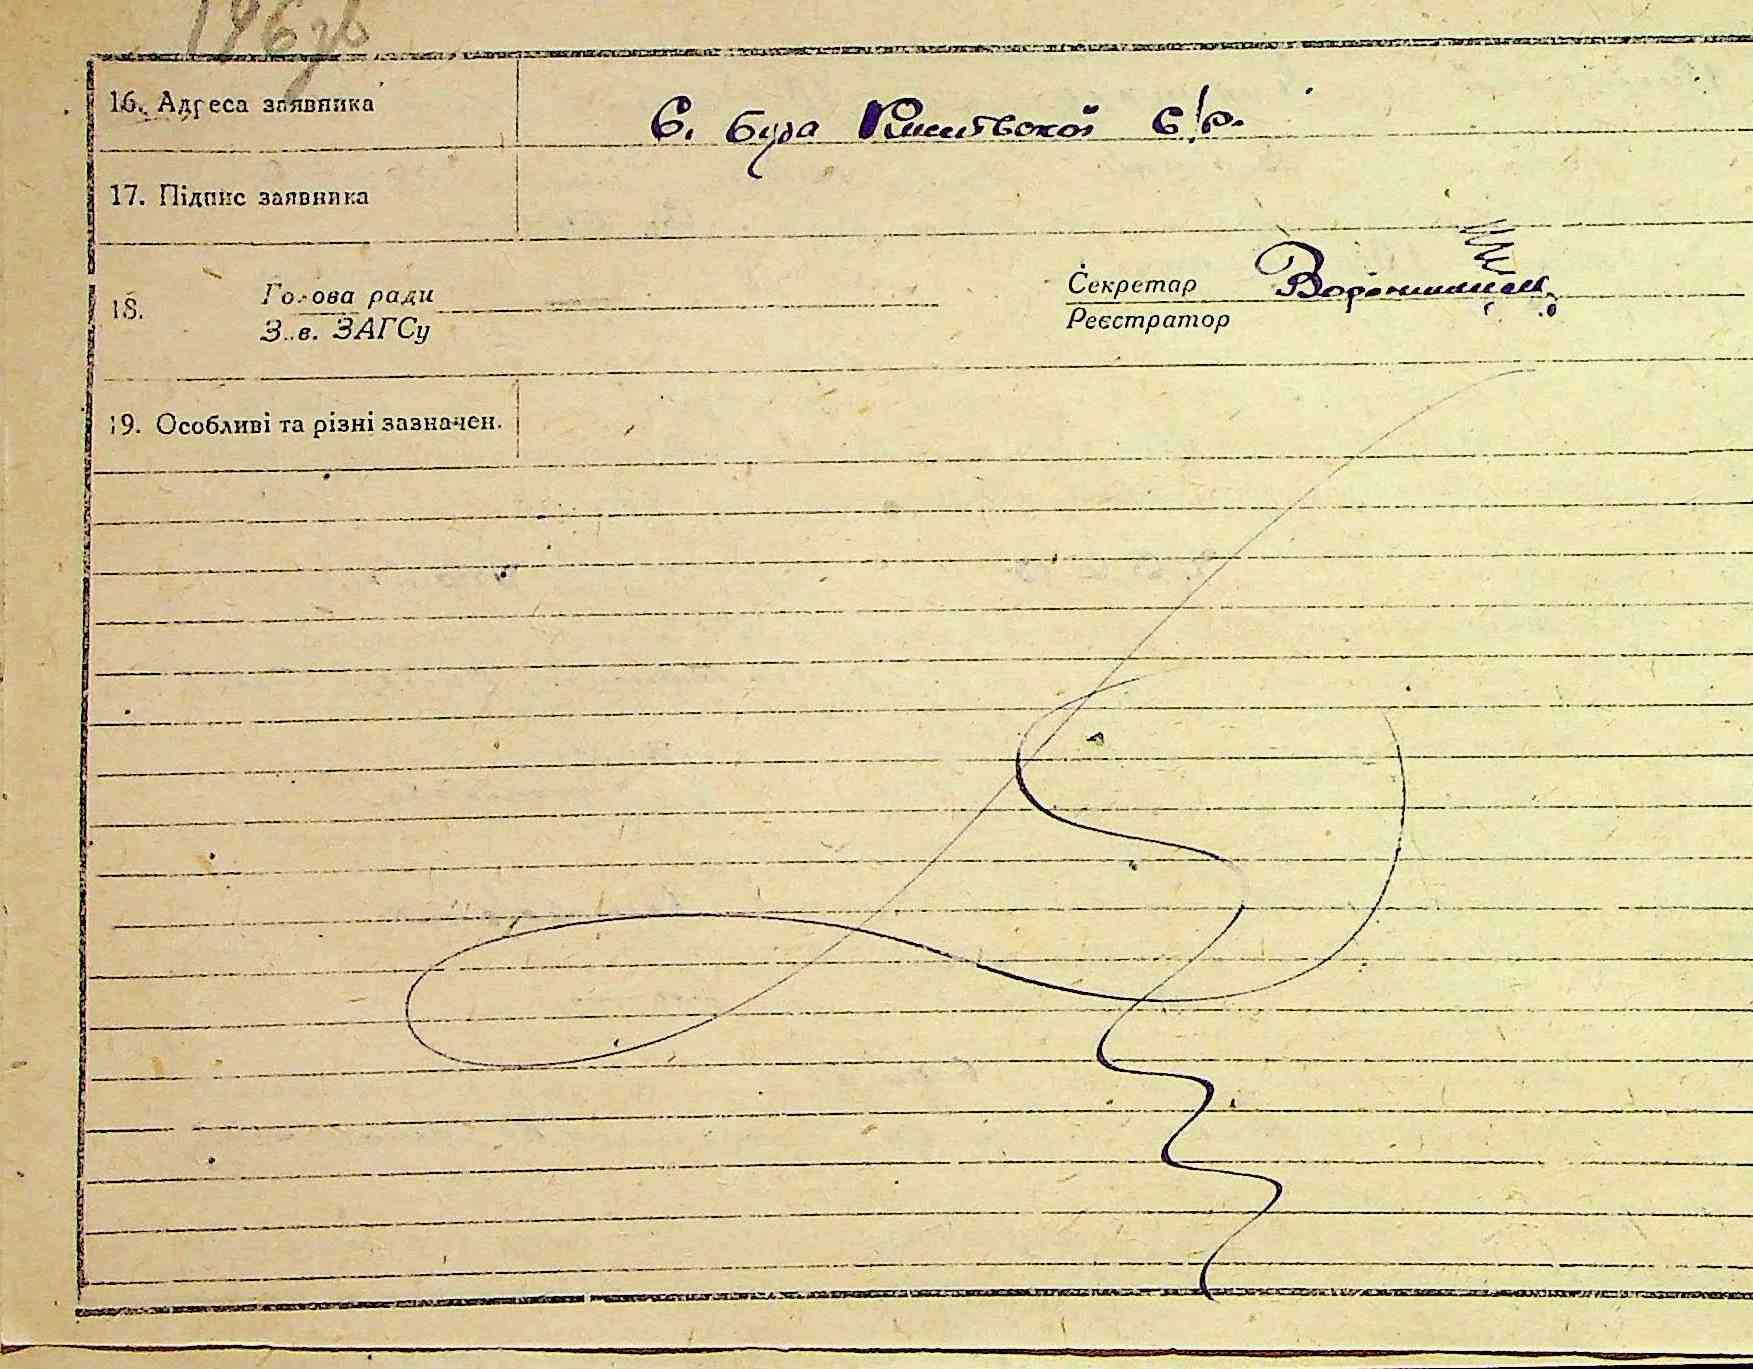 196 зв
16. Адреса заявника с. Буда с/р.
17. Підпис заявника
18. Голова ради Секретар
Зав. ЗАГСу Реєстратор
19. Особливі та різні зазначен.